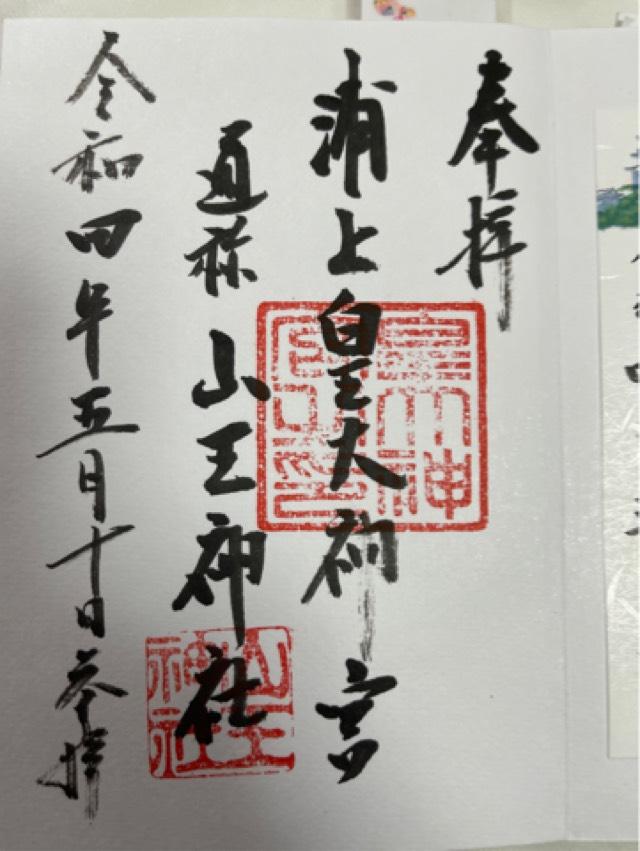 奉拝
浦上皇大神宮
通称 山王神社
令和四年五月十日参拝
皇大神
山王神社